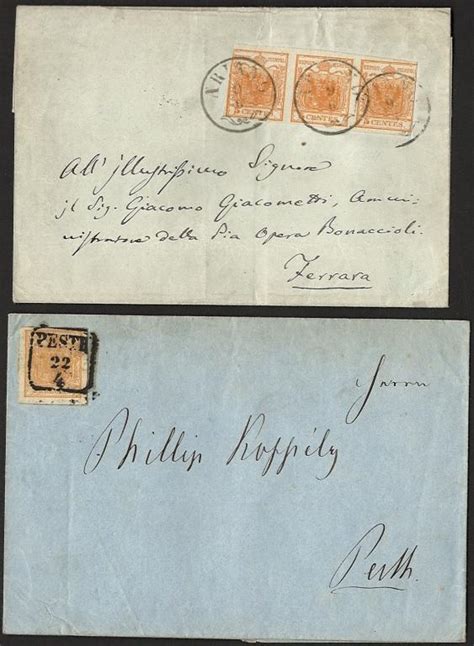 5 CENTES. CENTES. 5 CENTES.
All' jllustrissimo Signore
jl Sig. Giacomo Giacometti, Ammi-
nistratore della Pia Opera Bonaccioli.
Ferrara
PESTH
22
4
Herrn
Phillip
Pesth.